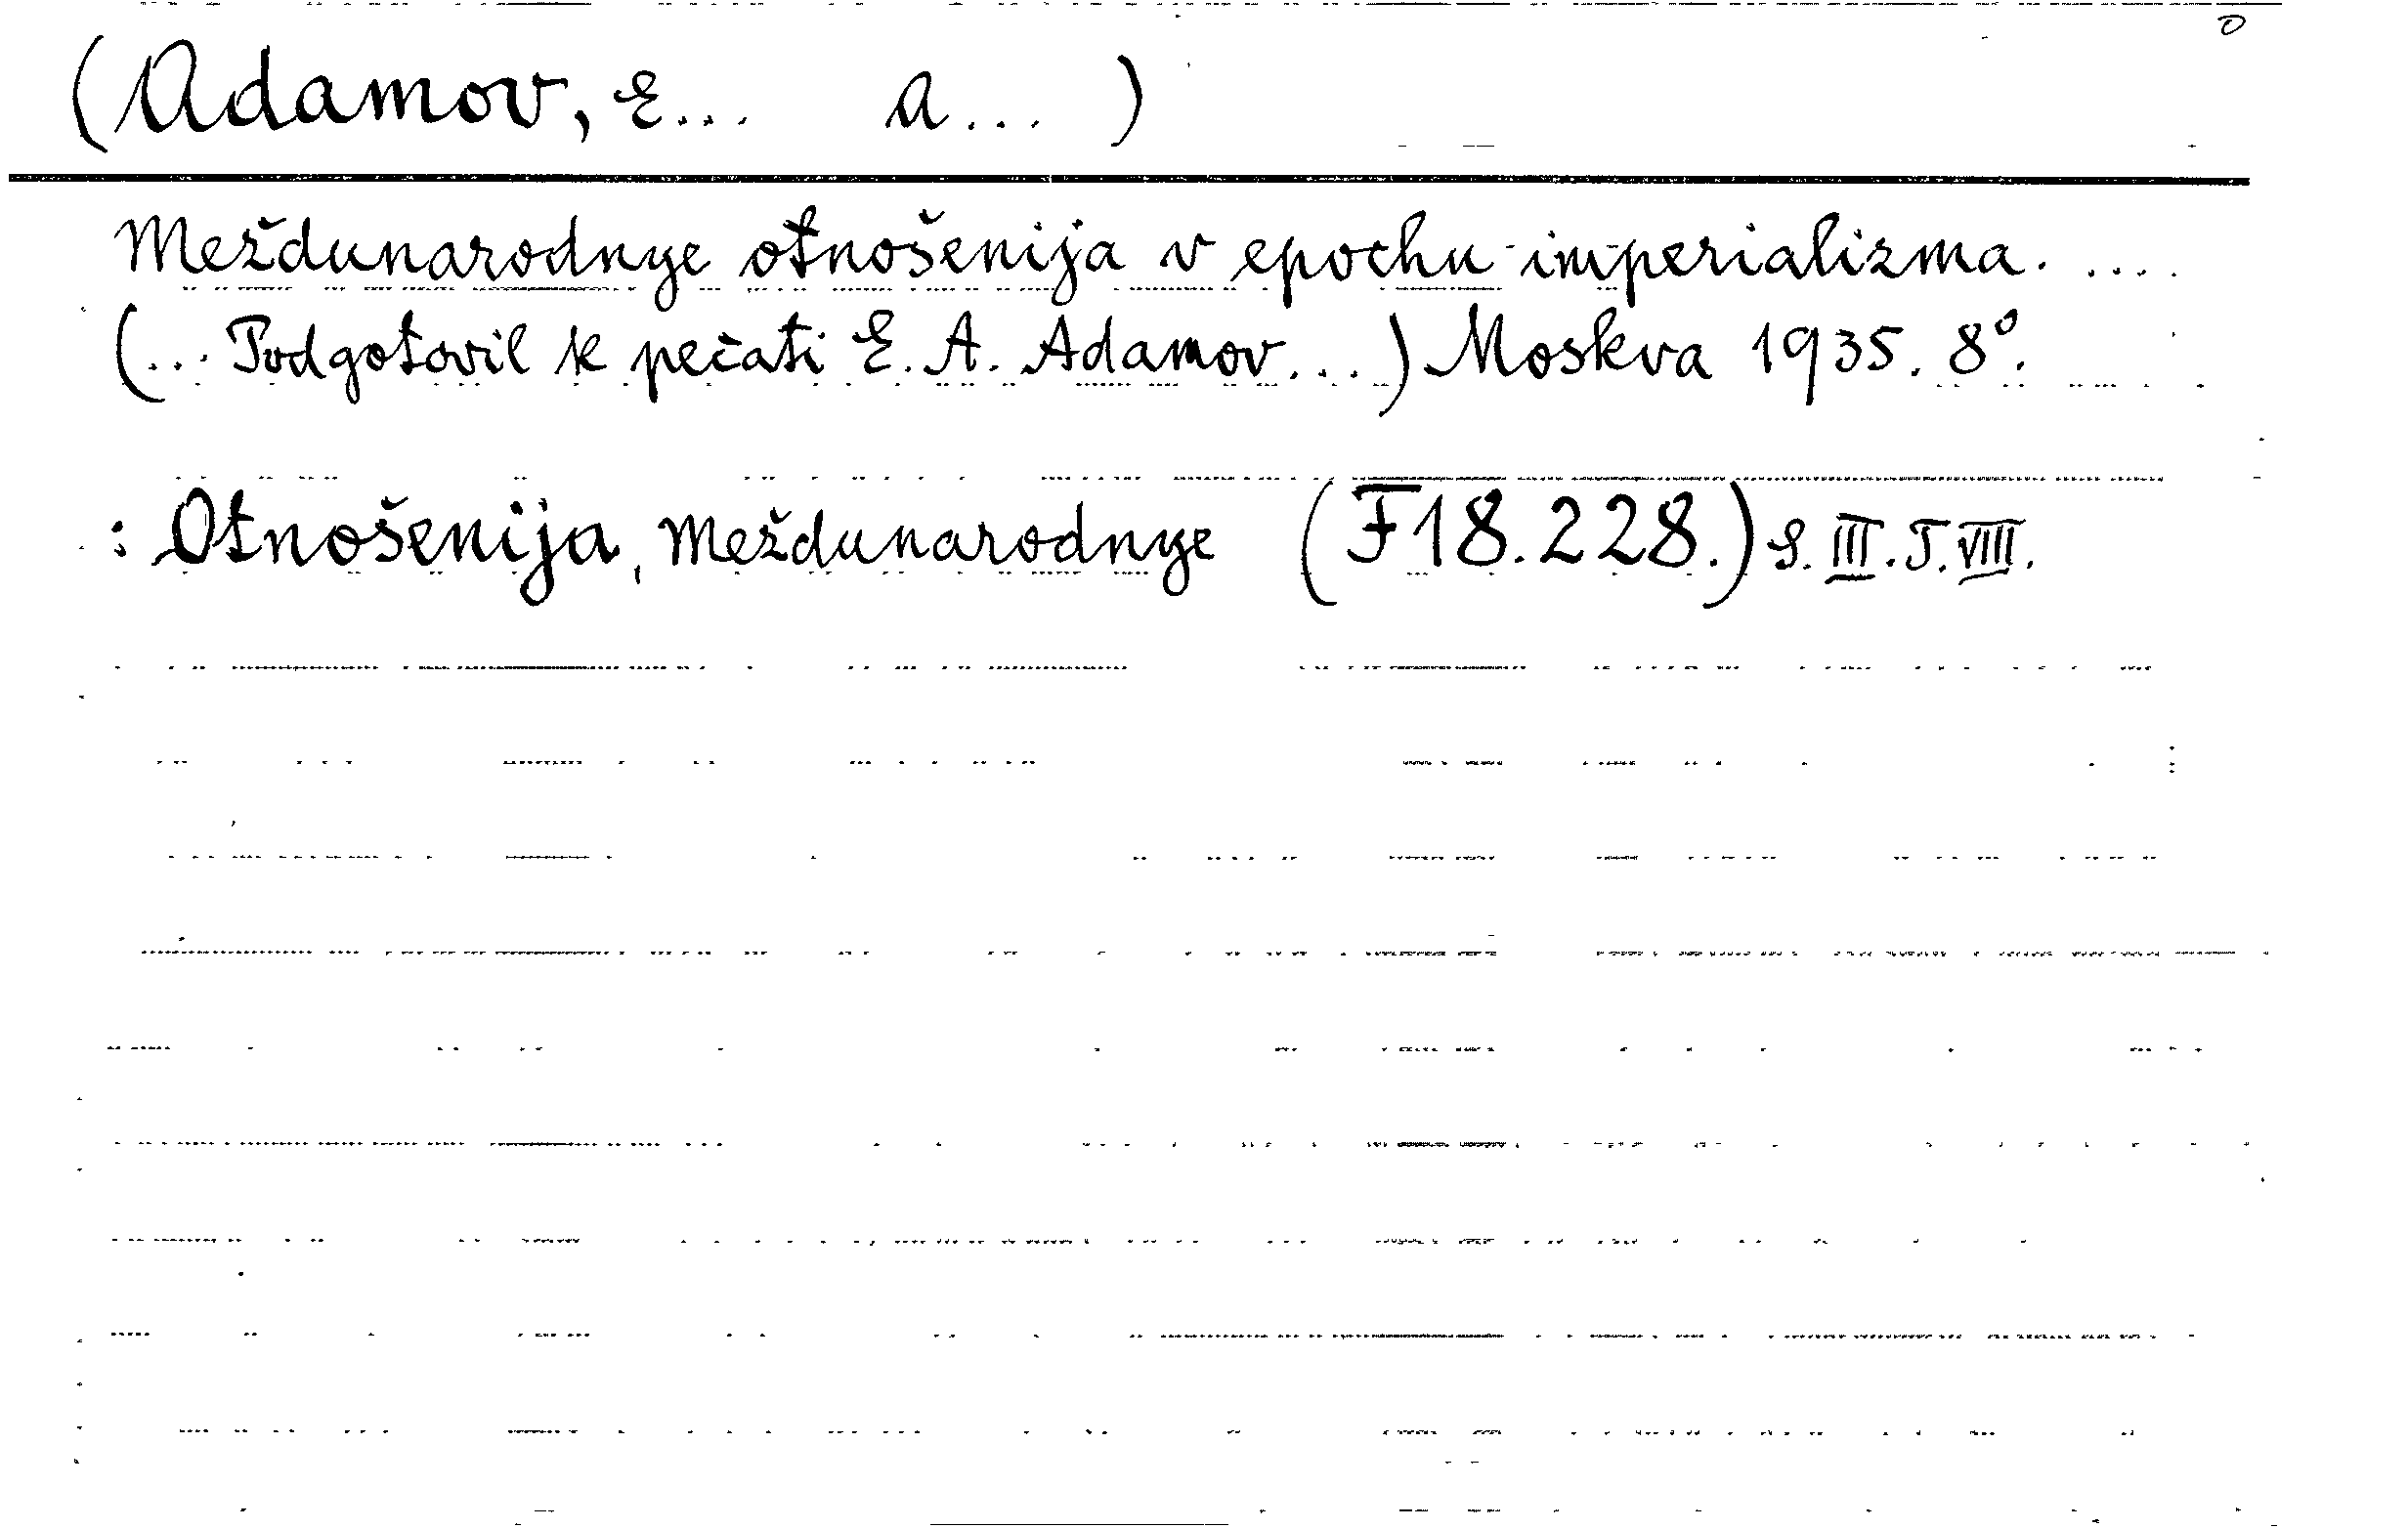 (Adamov, E... A... )
Meždunarodnye otnošenija v epochu imperializma. ....
(... Podgotovil k pečati E. A. Adamov...) Moskva 1935. 8°.
: Otnošenija, Meždunarodnye (F18.228.) S. III. T. VIII.